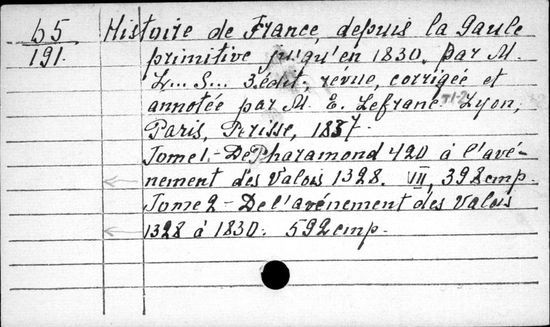 65 Histoire de France, depuis la Gaule
191. primitive jusqu'en 1830. Par M.
L... S... 3 édit., révue, corrigée et
annotée par M. E. Lefranc. Lyon,
Paris, Perisse, 1837.
Tome 1.- De Pharamond 420 à l'avé-
nement des Valois 1328. VII, 392 cmp.
Tome 2 - De l'avénement des Valois
1328 à 1830. 592 cmp.